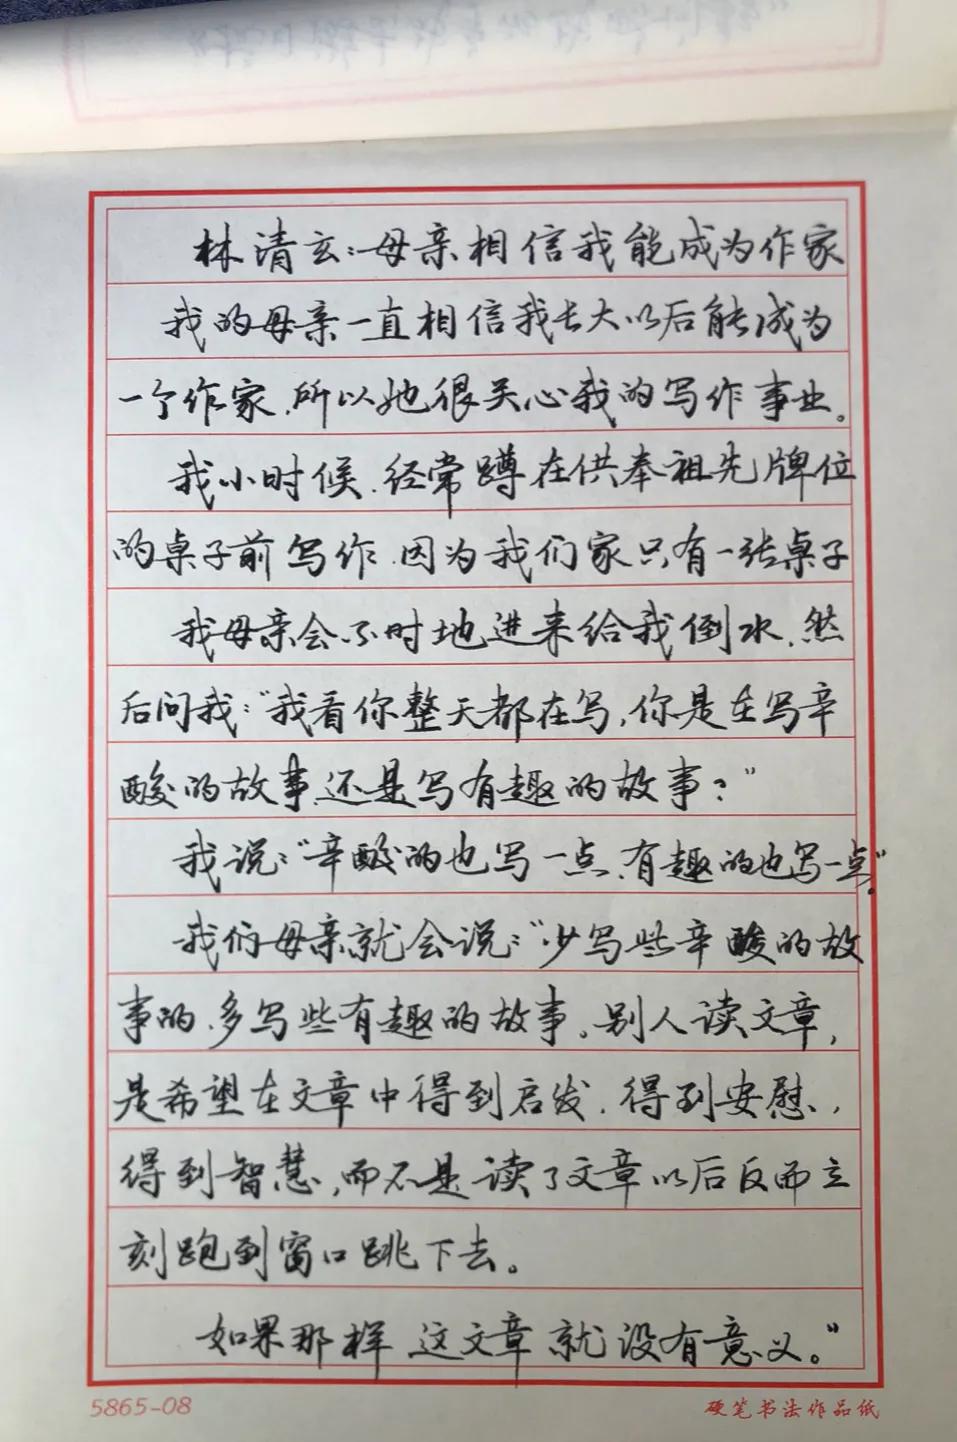 林清玄:母亲相信我能成为作家
我的母亲一直相信我长大以后能成为
一个作家,所以她很关心我的写作事业。
我小时候,经常蹲在供奉祖先牌位
的桌子前写作,因为我们家只有一张桌子
我母亲会不时地进来给我倒水,然
后问我:“我看你整天都在写,你是在写辛
酸的故事,还是写有趣的故事?”
我说:“辛酸的也写一点,有趣的也写一点。”
我们母亲就会说:“少写些辛酸的故
事的,多写些有趣的故事。别人读文章,
是希望在文章中得到启发,得到安慰,
得到智慧,而不是读了文章以后反而立
刻跑到窗口跳下去。
如果那样这文章就没有意义。”
5865-08
硬笔书法作品纸